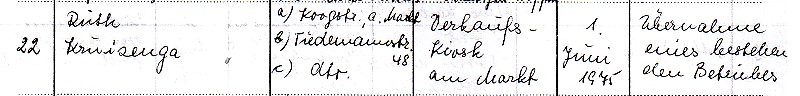 22
Ruth
Kruizenga
a) Koogstr., a. Markt
b) Tiedemannstr.
48
c) dtr.
Verkaufs-
kiosk
am Markt
1.
Juni
1975
Übernahme
eines bestehen
den Betriebes